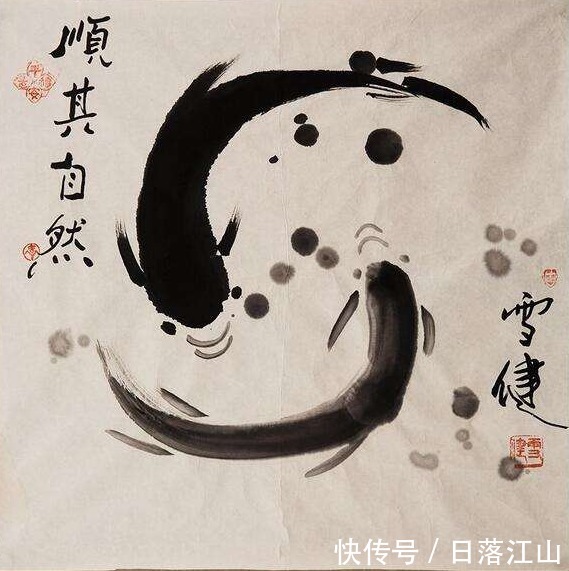 順其自然
雪健
快传号 / 日落江山